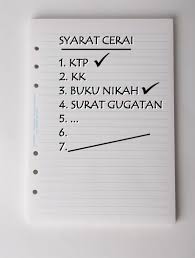 SYARAT CERAI
1. KTP ✓
2. KK
3. BUKU NIKAH ✓
4. SURAT GUGATAN
5. ...
6.
7.